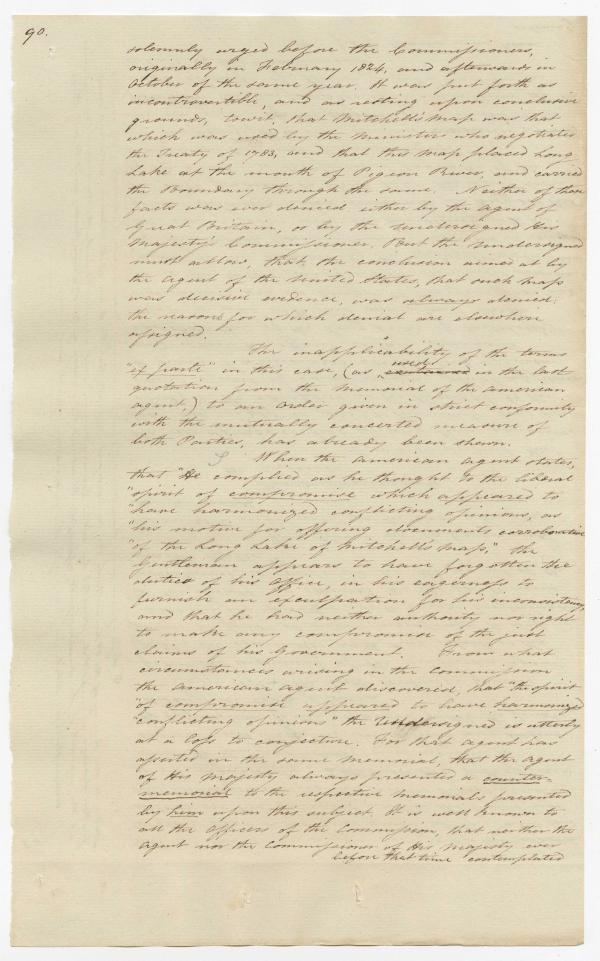 90.
solemnly urged before the Commissioners,
originally in February 1824, and afterwards in
October of the same year. It was put forth as
incontrovertible, and as resting upon conclusive
grounds, towit, that Mitchell's Map was that
which was used by the Ministers who negotiated
the Treaty of 1783, and that this map placed Long
Lake at the mouth of Pigeon River, and carried
the Boundary through the same. Neither of these
facts was ever denied either by the agent of
Great Britain, or by the undersigned His
Majesty's Commissioner. But the undersigned
must allow, that the conclusion aimed at by
the agent of the United States, that such map
was decisive evidence, was always denied:
the reasons for which denial are elsewhere
assigned.
The inapplicability of the terms
"ex parte" in this case, (as used in the last
quotation from the Memorial of the american
agent,) to an order given in strict conformity
with the mutually concerted measure of
both Parties, has already been shewn.
When the american agent states,
that "He complied as he thought to the liberal
"spirit of compromise which appeared to
"have harmonized conflicting opinions, as
"his motive for offering documents corroborative
"of the Long Lake of Mitchell's map," the
Gentleman appears to have forgotten the
duties of his Office, in his eagerness to
furnish an exculpation for his inconsistency,
and that he had neither authority nor right
to make any compromise of the just
claims of his Government. From what
circumstances arising in the Commission
the american agent discovered, that "the spirit
"of compromise appeared to have harmonized
"conflicting opinions" the Undersigned is utterly
at a loss to conjecture. For that agent has
asserted in the same memorial, that the agent
of His Majesty always presented a counter-
memorial to the respective memorials presented
by him upon this subject. It is well known to
all the Officers of the Commission, that neither the
agent nor the Commissioner of His Majesty ever
before that time contemplated